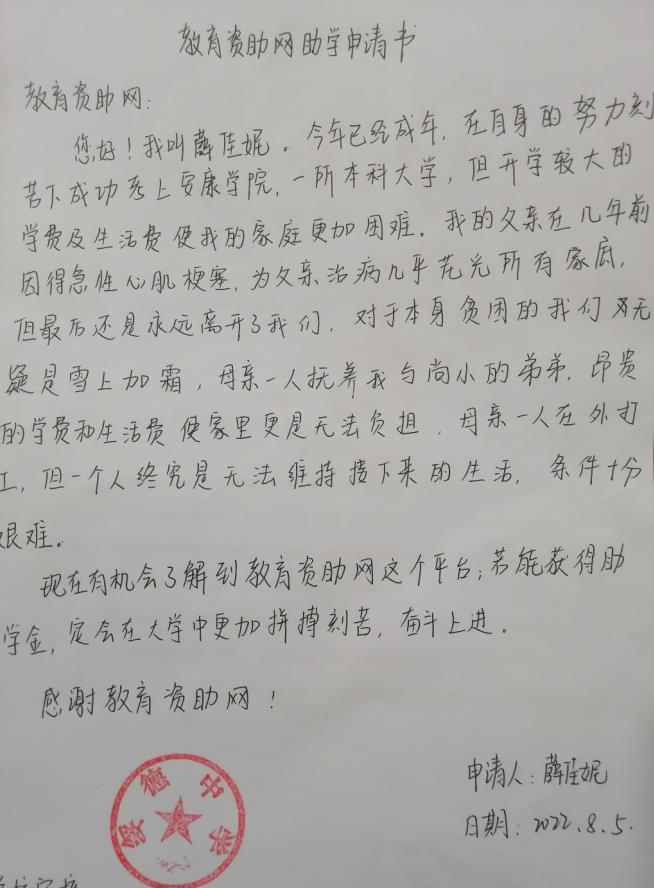 教育资助网助学申请书
教育资助网:
您好！我叫薛佳妮。今年已经成年，在自身的努力刻
苦下成功考上安康学院，一所本科大学，但开学较大的
学费及生活费使我的家庭更加困难。我的父亲在几年前
因得急性心肌梗塞，为父亲治病几乎花光所有家底，
但最后还是永远离开了我们，对于本身贫困的我们无
疑是雪上加霜，母亲一人抚养我与尚小的弟弟，昂贵
的学费和生活费使家里更是无法负担，母亲一人在外打
工，但一个人终究是无法维持接下来的生活，条件十分
艰难。
现在有机会了解到教育资助网这个平台；若能获得助
学金，定会在大学中更加拼搏刻苦，奋斗上进。
感谢教育资助网！
德中学
申请人：薛佳妮
日期：2022.8.5.